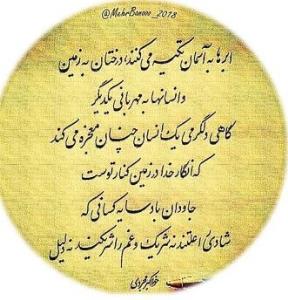 @MehrBanoo_2018
ابرها به آسمان تکیه می‌کنند، درختان به زمین
و انسانها به مهربانی یکدیگر
گاهی دلگرمی یک انسان چنان معجزه می کند
که انگار خدا در زمین کنار توست
جاودان باد سایه کسانی که
شادی را علتند نه شریک و غم را شریکند نه دلیل